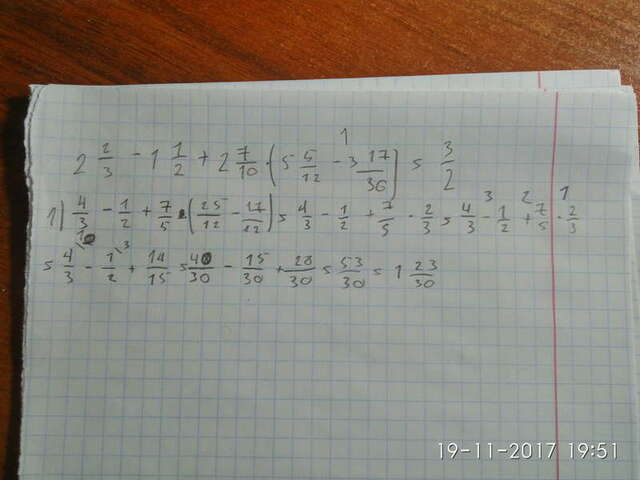 2 2/3 - 1 1/2 + 2 7/10 · (5 5/12 - 3 17/36) = 3/2
1
1) 4/3 - 1/2 + 7/5 · (25/12 - 17/12) = 4/3 - 1/2 + 7/5 · 2/3 = 4/3 - 1/2 + 7/5 · 2/3
3 2 1
= 4/3 - 1/2 + 14/15 = 40/30 - 15/30 + 28/30 = 53/30 = 1 23/30
10 3
19-11-2017 19:51